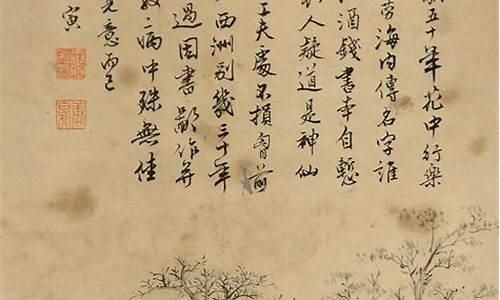 五十年花中行樂
勞海内傳名字誰
酒錢書本自慙
人疑道是神仙
工夫處不損胷前
西洲別幾三十年
過因書鄙作并
病中殊無佳
見意而已
寅